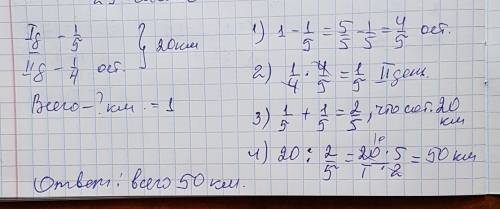 Iд - 1/5
IIд - 1/4 ост. } 20км
Всего - ? км. = 1
1) 1 - 1/5 = 5/5 - 1/5 = 4/5 ост.
2) 1/4 · 4/5 = 1/5 II ден.
3) 1/5 + 1/5 = 2/5, что сот. 20 км
4) 20 : 2/5 = 20 · 5 / 1 · 2 = 50 км
10
Ответ: всего 50 км.